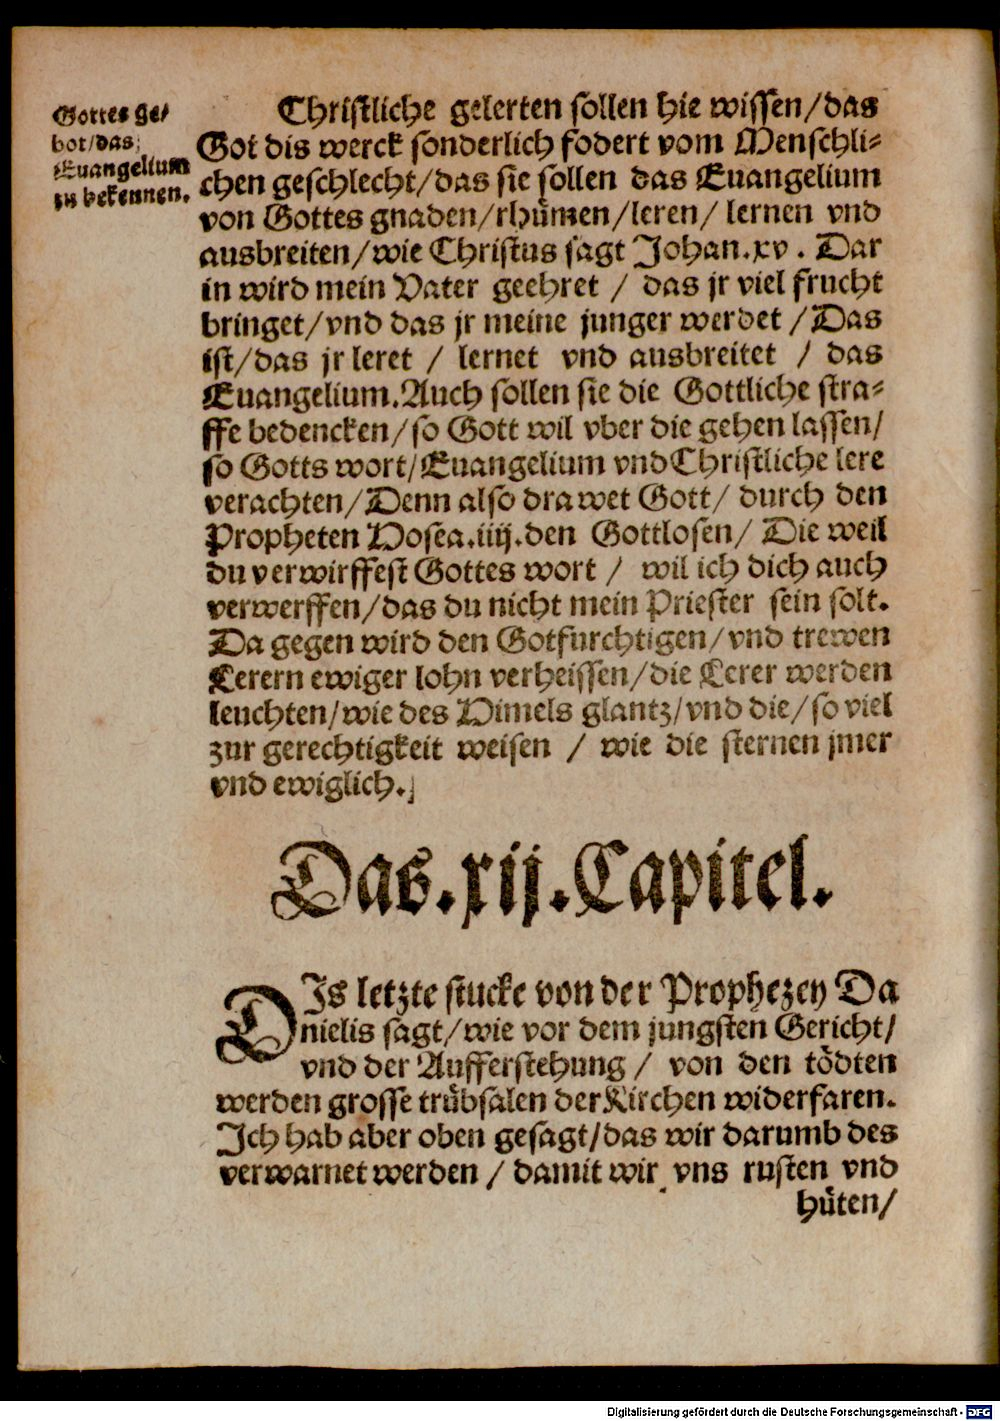 Gottes ge/
bot/das
Euangelium
zu bekennen.
Christliche gelerten sollen hie wissen/das
Got dis werck sonderlich fodert vom Menschli⸗
chen geschlecht/das sie sollen das Euangelium
von Gottes gnaden/rhuͤmen/leren/ lernen vnd
ausbreiten/wie Christus sagt Johan.xv. Dar
in wird mein Vater geehret / das jr viel frucht
bringet/vnd das jr meine junger werdet /Das
ist/das jr leret / lernet vnd ausbreitet / das
Euangelium.Auch sollen sie die Gottliche stra⸗
ffe bedencken/so Gott wil vber die gehen lassen/
so Gotts wort/Euangelium vnd Christliche lere
verachten/Denn also drawet Gott/ durch den
Propheten Hosea.iiij.den Gottlosen/ Die weil
du verwirffest Gottes wort / wil ich dich auch
verwerffen/das du nicht mein Priester sein solt.
Da gegen wird den Gotfurchtigen/vnd trewen
Lerern ewiger lohn verheissen/die Lerer werden
leuchten/wie des Himels glantz/vnd die/so viel
zur gerechtigkeit weisen / wie die sternen jmer
vnd ewiglich.
Das.xij.Capitel.
DIs letzte stucke von der Prophezey Da
nielis sagt/wie vor dem jungsten Gericht/
vnd der Aufferstehung / von den toͤdten
werden grosse truͤbsalen der Kirchen widerfaren.
Ich hab aber oben gesagt/das wir darumb des
verwarnet werden / damit wir vns rusten vnd
huͤten/
Digitalisierung gefördert durch die Deutsche Forschungsgemeinschaft - DFG